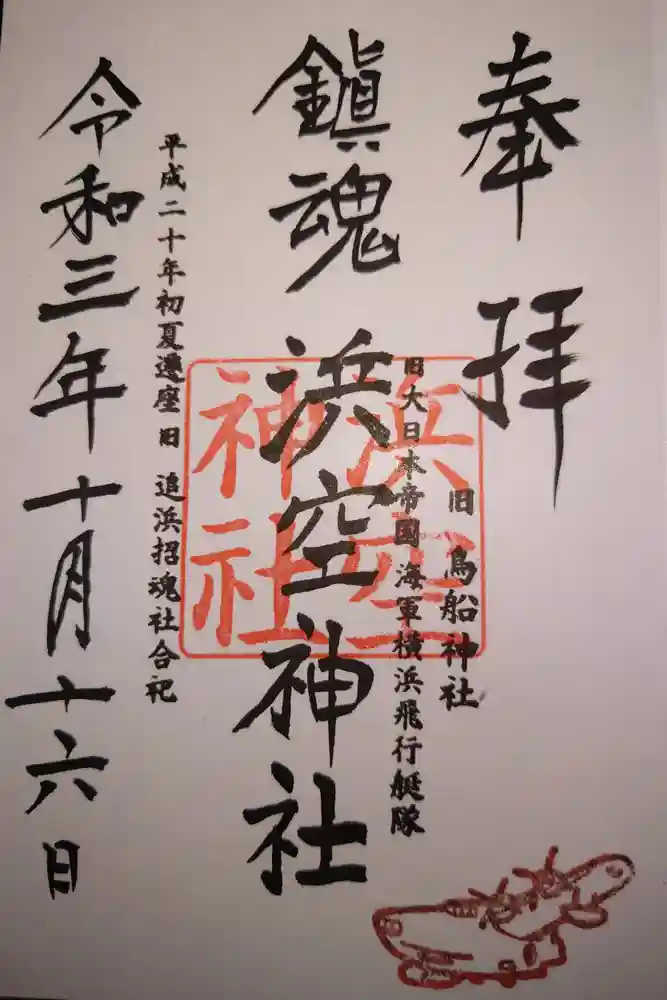 奉拝
旧 鳥船神社
旧大日本帝国海軍横浜飛行艇隊
鎮魂 浜空神社
浜空
神社
平成二十年初夏遷座旧 追浜招魂社合祀
令和三年十月十六日